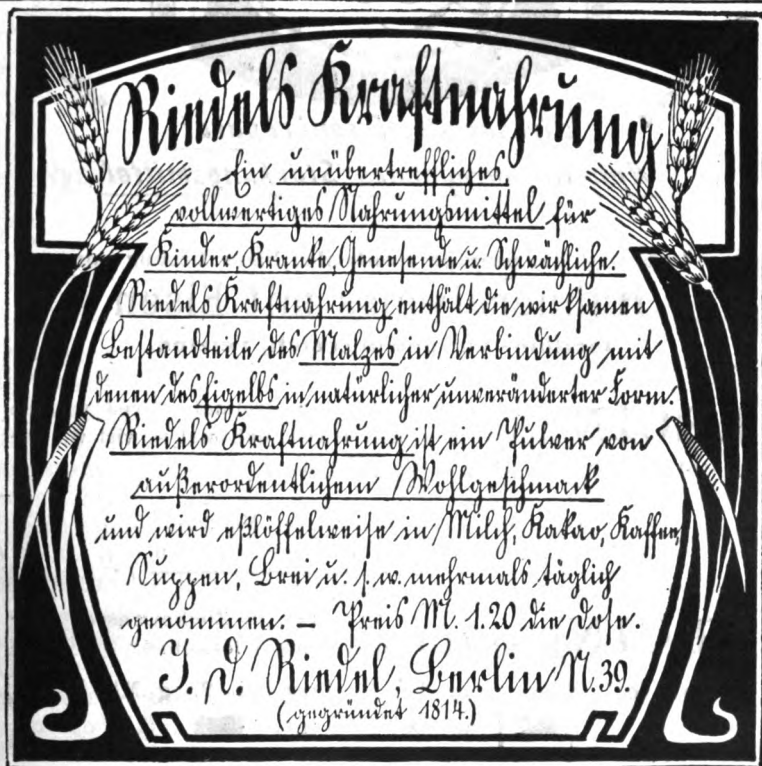 Riedels Kraftnahrung
Ein unübertreffliches,
vollwertiges Nahrungsmittel für
Kinder, Kranke, Genesende u. Schwächliche.
Riedels Kraftnahrung enthält die wirksamen
Bestandteile des Malzes in Verbindung mit
denen des Eigelbs in natürlicher unveränderter Form.
Riedels Kraftnahrung ist ein Pulver von
außerordentlichem Wohlgeschmack
und wird eßlöffelweise in Milch, Kakao, Kaffee,
Suppen, Brei u. s. w. mehrmals täglich
genommen. – Preis M. 1.20 die Dose.
J. D. Riedel, Berlin N. 39.
(gegründet 1814.)